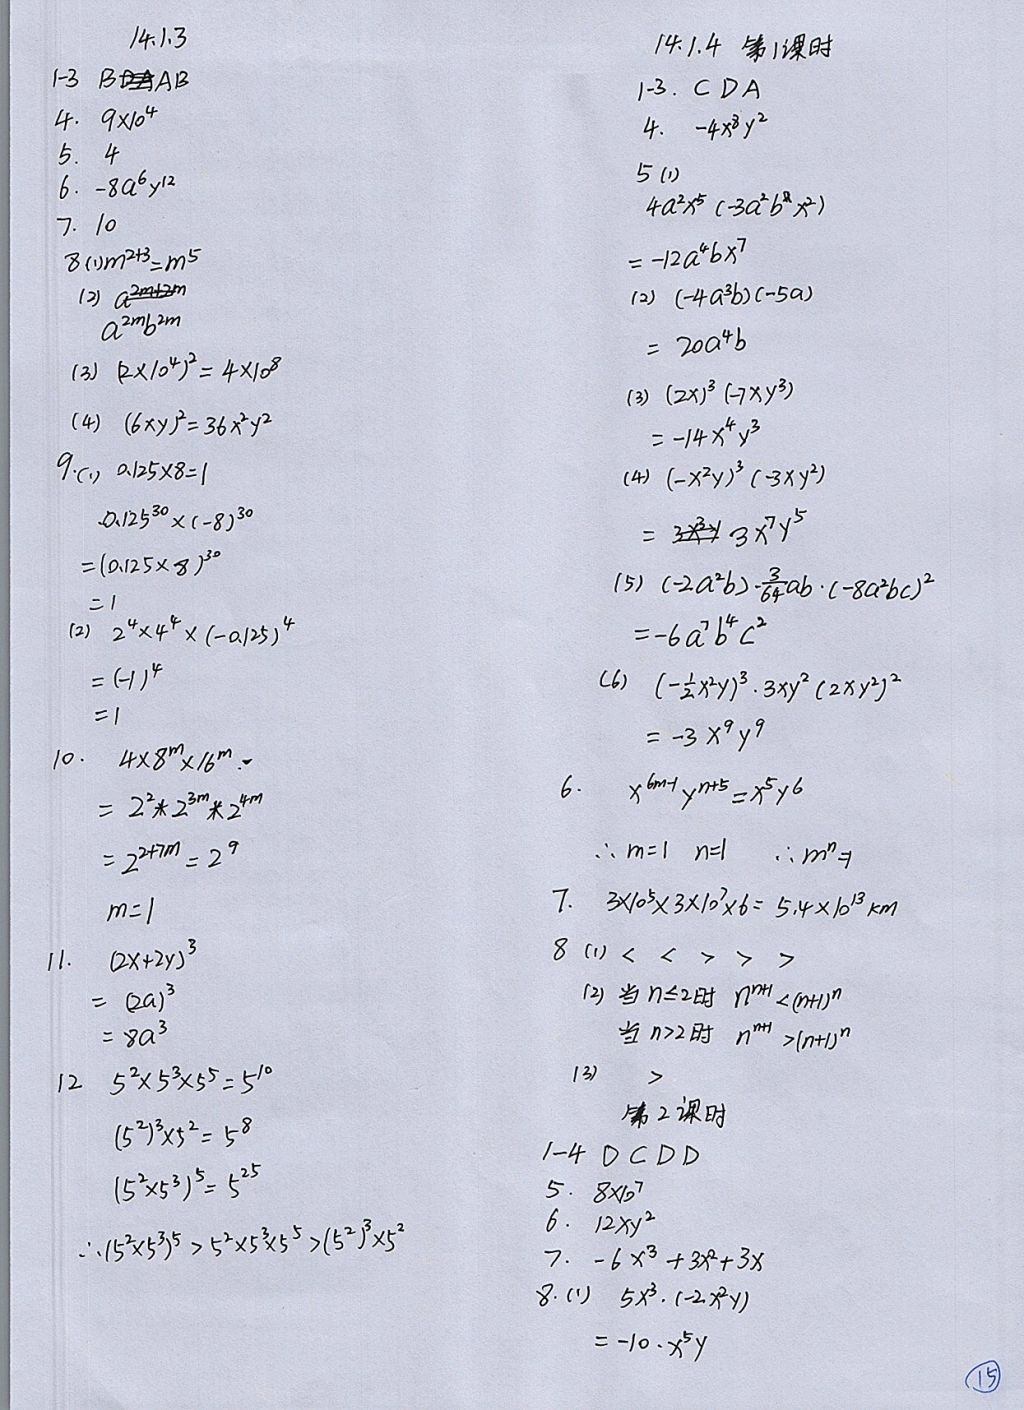 14.1.3
1-3 B AB
4. 9×10⁴
5. 4
6. -8a⁶y¹²
7. 10
8 (1) m²⁺³=m⁵
(2) a²ᵐ⁺²ᵐ
a²ᵐb²ᵐ
(3) (2×10⁴)²=4×10⁸
(4) (6xy)²=36x²y²
9.(1) 0.125×8=1
0.125³⁰×(-8)³⁰
=(0.125×8)³⁰
=1
(2) 2⁴×4⁴×(-0.125)⁴
=(-1)⁴
=1
10. 4×8ᵐ×16ᵐ
=2²*2³ᵐ*2⁴ᵐ
=2²⁺⁷ᵐ=2⁹
m=1
11. (2x+2y)³
=(2a)³
=8a³
12 5²×5³×5⁵=5¹⁰
(5²)³×5²=5⁸
(5²×5³)⁵=5²⁵
∴(5²×5³)⁵>5²×5³×5⁵>(5²)³×5²
14.1.4 第1课时
1-3. C D A
4. -4x³y²
5 (1)
4a²x⁵(-3a²b x²)
=-12a⁴bx⁷
(2) (-4a³b)(-5a)
=20a⁴b
(3) (2x)³(-7xy³)
=-14x⁴y³
(4) (-x²y)³(-3xy²)
= 3x⁷y⁵
(5) (-2a²b)·3/64ab·(-8a²bc)²
=-6a⁷b⁴c²
(6) (-1/2x²y)³·3xy²(2xy²)²
=-3x⁹y⁹
6. x⁶ᵐ⁻¹yⁿ⁺⁵=x⁵y⁶
∴m=1 n=1 ∴mⁿ=1
7. 3×10⁵×3×10⁷×6=5.4×10¹³km
8 (1) < < > > >
(2) 当n≤2时 nⁿ⁺¹<(n+1)ⁿ
当n>2时 nⁿ⁺¹>(n+1)ⁿ
(3) >
第2课时
1-4 D C D D
5. 8×10⁷
6. 12xy²
7. -6x³+3x²+3x
8.(1) 5x³·(-2x²y)
=-10·x⁵y
15